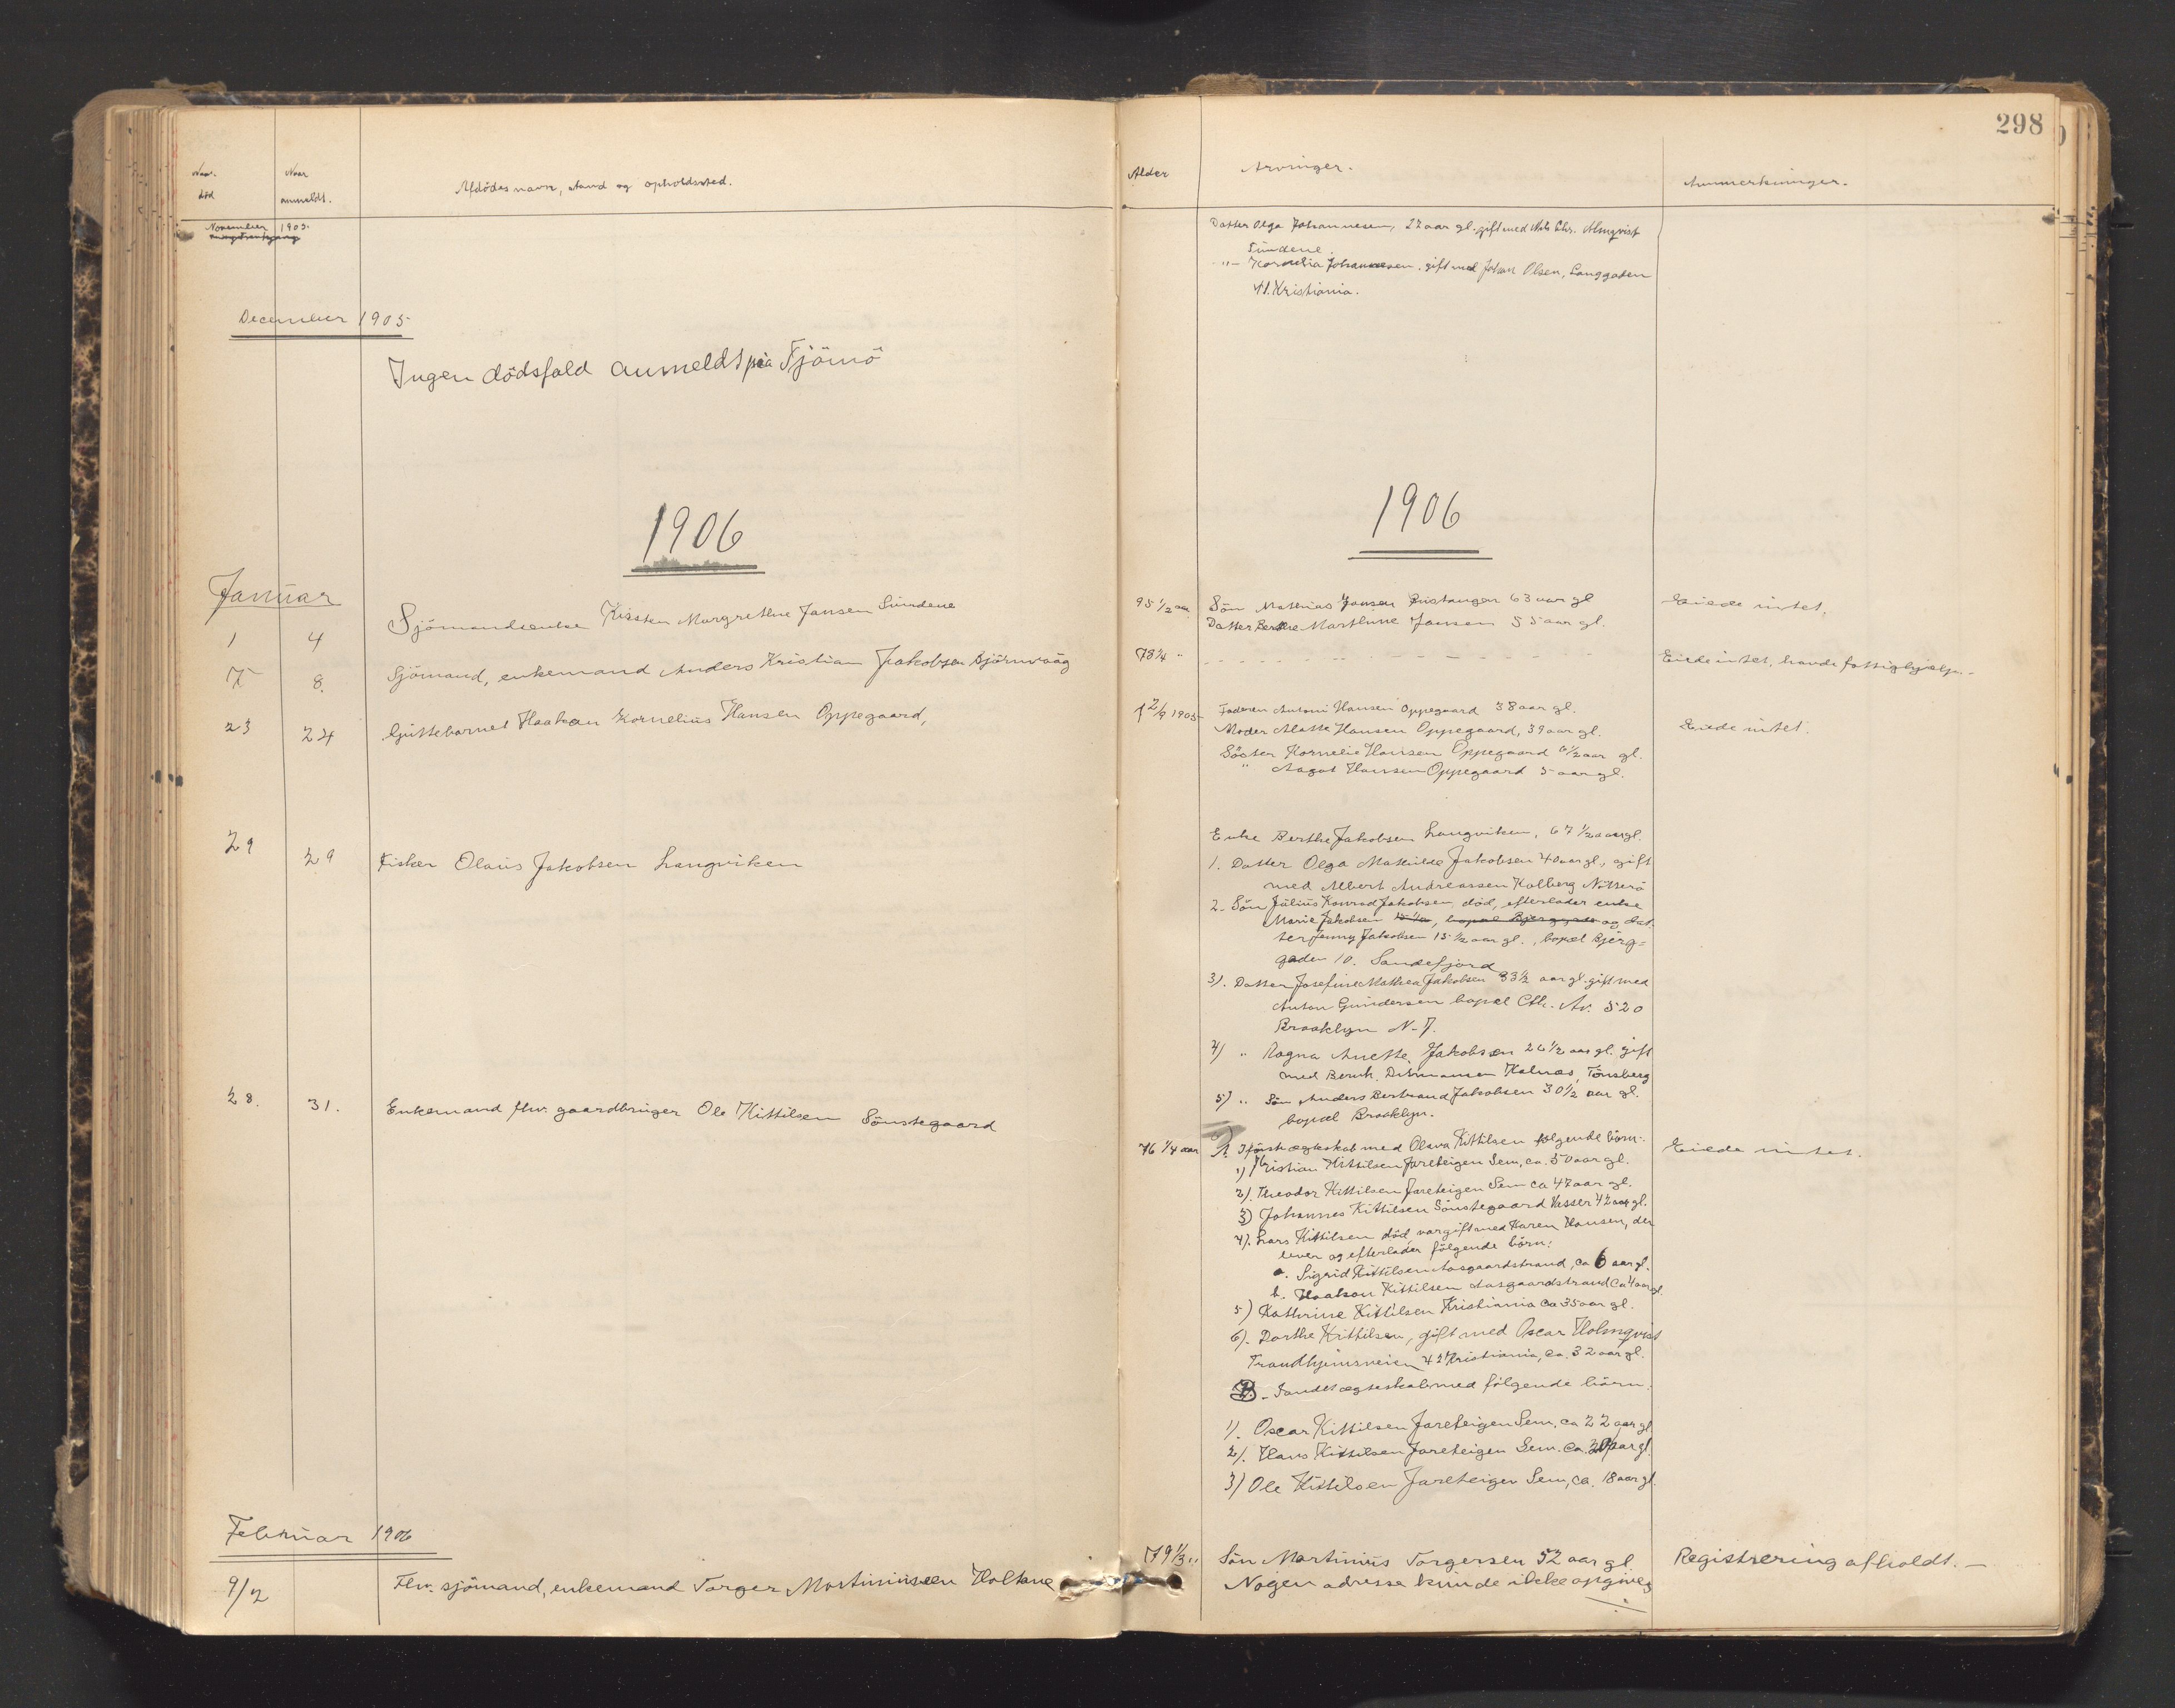 298
Naar død
Naar anmeldt.
Afdödes navn, stand og opholdssted.
Alder
Arvinger.
Anmerkninger.
November 1905.
Datter Olga Johannesen, 22 aar gl. gift med Nils Chr. Almqvist
Sundene.
-"- Kornelia Johannesen, gift med Johan Olsen, Langgaden
41. Kristiania.
December 1905
Ingen dödsfald anmeldt paa Tjömö
1906
1906
Januar
1 4 Sjömandsenke Kirsten Margrethe Jansen Sundene
95 1/2 aar
Sön Mathias Jansen 63 aar gl
Datter Berthe Marthine Jansen 55 aar gl.
Eiede intet.
7 8. Sjömand, enkemand Anders Kristian Jakobsen Björnvaag
78 1/4 "
Eiede intet, havde fattighjælp.-
23 24 Guttebarnet Haakon Kornelius Hansen Oppegaard,
f 2/9 1905
Faderen Antoni Hansen Oppegaard 38 aar gl.
Moder Mathe Hansen Oppegaard, 39 aar gl.
Söster Kornelie Hansen Oppegaard 6 1/2 aar gl.
" Aagot Hansen Oppegaard 5 aar gl.
Eiede intet.
29 29 Fisker Olaus Jakobsen Langviken
Enke Berthe Jakobsen Langviken, 67 1/2 aar gl.
1. Datter Olga Mathilde Jakobsen 40 aar gl., gift
med Albert Andreassen Kolberg Nötterö
2. Sön Julius Konrad Jakobsen, död, efterlader enke
Marie Jakobsen 15 1/2, bopæl Bjerggade og dat-
ter Jenny Jakobsen 15 1/2 aar gl., bopæl Bjerg=
gaden 10. Sandefjord
3). Datter Josefine Mathea Jakobsen 33 1/2 aar gl. gift med
Anton Gundersen bopæl Cth. Av. 520
Brooklyn N-J.
4) " Ragna Anette Jakobsen 26 1/2 aar gl. gift
med Bernh. Ditmansen Kalnæs, Tönsberg
5) " Sön Anders Bertrand Jakobsen 30 1/2 aar gl.
bopæl Brooklyn.
28. 31. Enkemand fhv. gaardbruger Ole Kittilsen Sönstegaard
76 1/4 aar
A. I förste ægteskab med Olava Kittilsen følgende börn:
1) Kristian Kittilsen Jareteigen Sem, ca. 50 aar gl.
2). Theodor Kittilsen Jareteigen Sem ca 47 aar gl.
3) Johannes Kittilsen Sönstegaard Vesser 42 aar gl.
4). Lars Kittilsen död, var gift med Karen Hansen, der
lever og efterlader fölgende börn:
a. Sigrid Kittilsen Aasgaardstrand, ca 6 aar gl.
b. Haakon Kittilsen Aasgaardstrand ca 4 aar gl.
5) Kathrine Kittilsen Kristiania ca 35 aar gl.
6). Dorthe Kittilsen, gift med Oscar Holmqvist
Trondhjemsveien 42 Kristiania, ca. 32 aar gl.
B. I andet ægteskab med fölgende börn:
1). Oscar Kittilsen Jareteigen Sem, ca 22 aar gl
2). Hans Kittilsen Jareteigen Sem. ca. 20 aar gl.
3) Ole Kittilsen Jareteigen Sem, ca. 18 aar gl.
Eiede intet.
Februar 1906
9/2 Fhv. sjömand, enkemand Torger Martiniussen Holtane
79 1/3 "
Sön Martinius Torgersen 52 aar gl
Nogen adresse kunde ikke opgives
Registrering afholdt. -